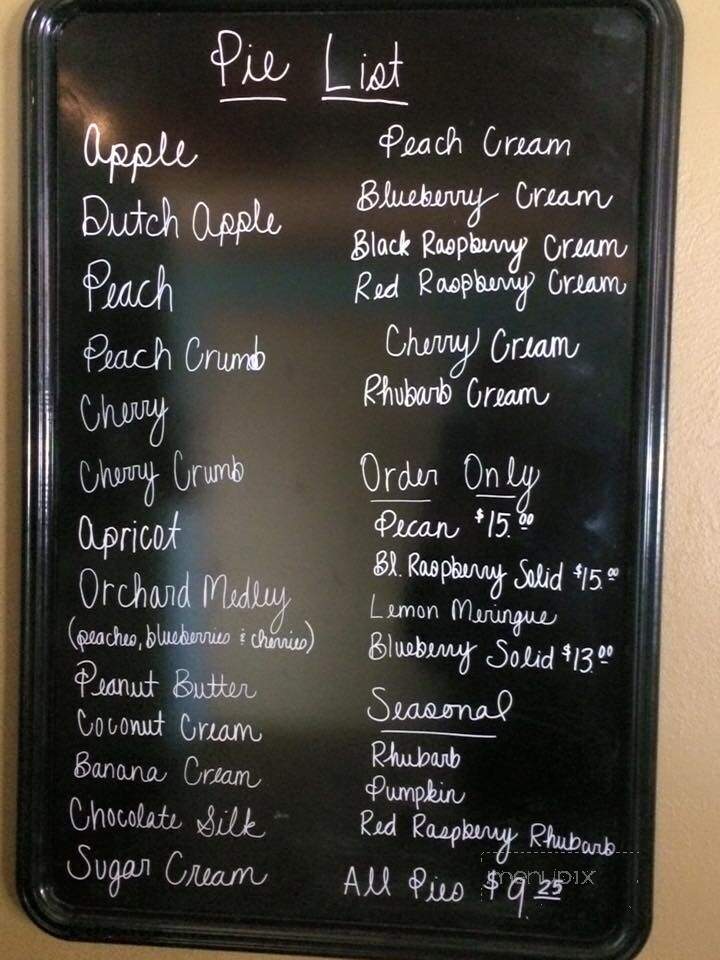 Pie List
Apple
Dutch Apple
Peach
Peach Crumb
Cherry
Cherry Crumb
Apricot
Orchard Medley
(peaches, blueberries & cherries)
Peanut Butter
Coconut Cream
Banana Cream
Chocolate Silk
Sugar Cream
Peach Cream
Blueberry Cream
Black Raspberry Cream
Red Raspberry Cream
Cherry Cream
Rhubarb Cream
Order Only
Pecan $15.00
Bl. Raspberry Solid $15.00
Lemon Meringue
Blueberry Solid $13.00
Seasonal
Rhubarb
Pumpkin
Red Raspberry Rhubarb
All Pies $9.25
menupix